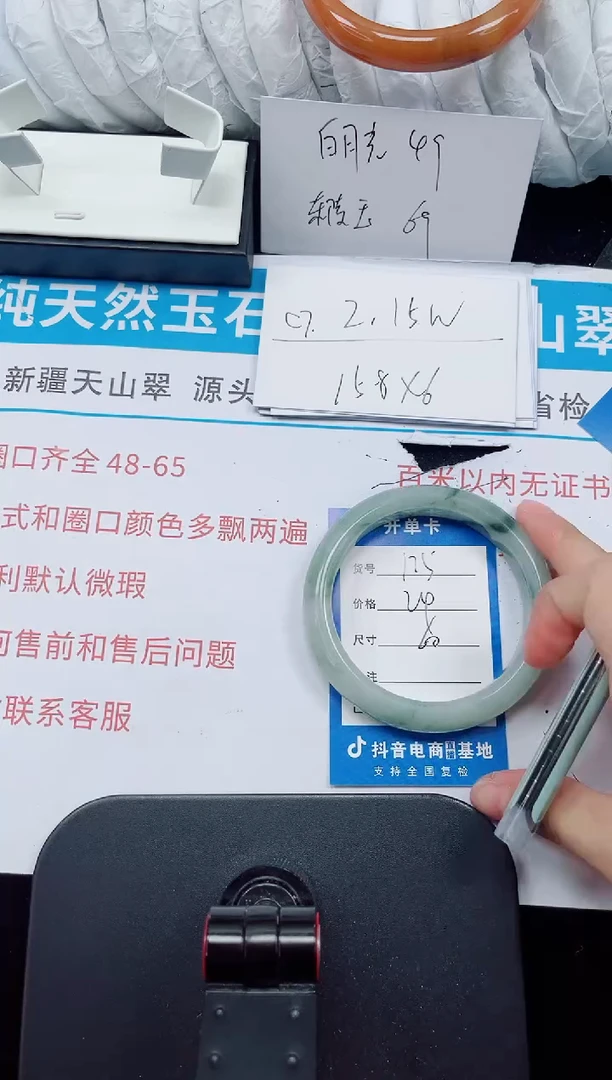 白月光 49
东陵玉 69
2.15W
158X6
纯天然玉石
山翠
新疆天山翠 源头
省检
圈口齐全 48-65
百米以内无证书
式和圈口颜色多飘两遍
利默认微瑕
何售前和售后问题
联系客服
开单卡
货号 125
价格
尺寸 60
注
抖音电商直播基地
支持全国复检